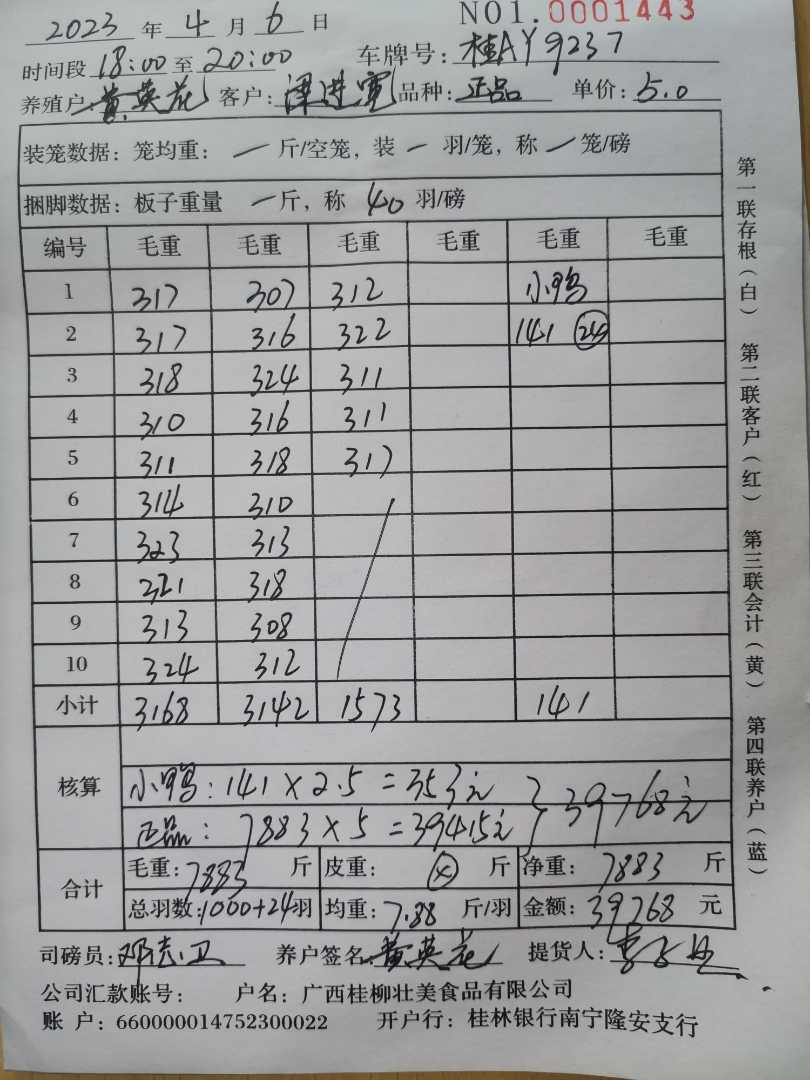 NO1.0001443
2023 年 4 月 6 日
时间段 18:00 至 20:00 车牌号: 桂AY9237
养殖户: 黄英花 客户: 谭进宽 品种: 正品 单价: 5.0
装笼数据: 笼均重: 一 斤/空笼, 装 一 羽/笼, 称 一 笼/磅
捆脚数据: 板子重量 一 斤, 称 40 羽/磅
编号 毛重 毛重 毛重 毛重 毛重 毛重
1 317 307 312 小鸭
2 317 316 322 141 24羽
3 318 324 311
4 310 316 311
5 311 318 317
6 314 310
7 323 313
8 321 318
9 313 308
10 324 312
小计 3168 3142 1573 141
核算
小鸭: 141×2.5=353元
正品: 7883×5=39415元 } 39768元
合计
毛重: 7883 斤 皮重: 斤 净重: 7883 斤
总羽数: 1000+24羽 均重: 7.88 斤/羽 金额: 39768 元
司磅员: 邓志卫 养户签名 黄英花 提货人:
公司汇款账号: 户名: 广西桂柳壮美食品有限公司
账 户: 660000014752300022 开户行: 桂林银行南宁隆安支行
第一联存根(白) 第二联客户(红) 第三联会计(黄) 第四联养户(蓝)